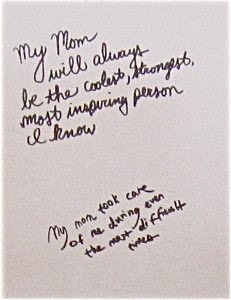 My Mom
will always
be the coolest, strongest,
most inspiring person
I know
My mom took care
of me during even
the most difficult
times